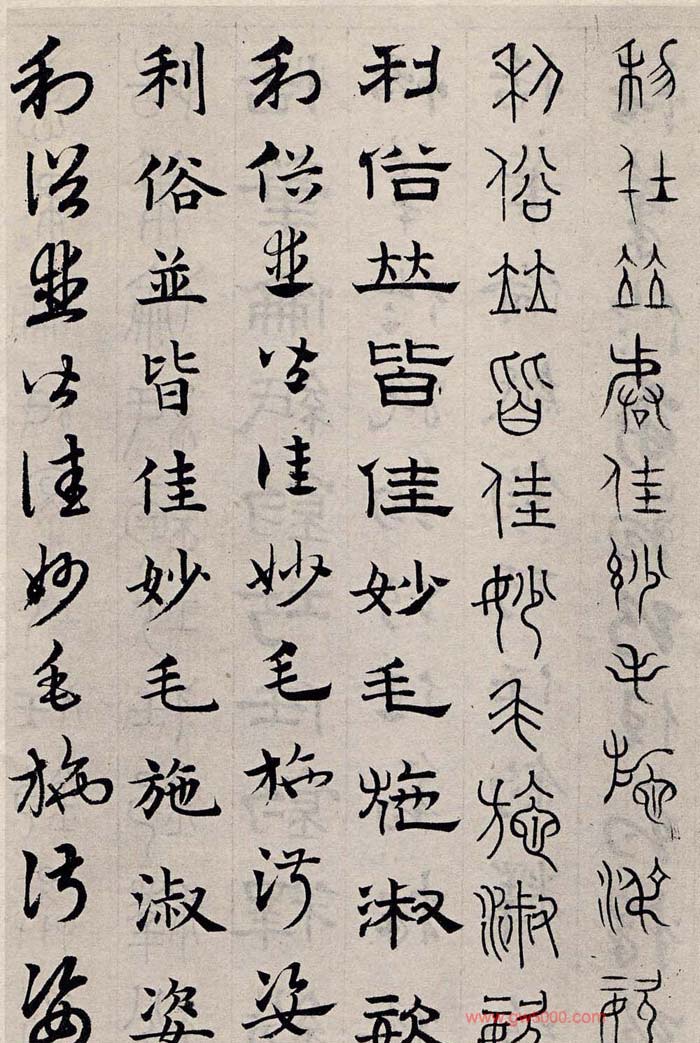 利俗並皆佳妙毛施淑
利俗並皆佳妙毛施淑
利俗並皆佳妙毛施淑
利俗並皆佳妙毛施淑姿
利俗並皆佳妙毛施淑姿
利俗並皆佳妙毛施淑姿
www.gw5000.com